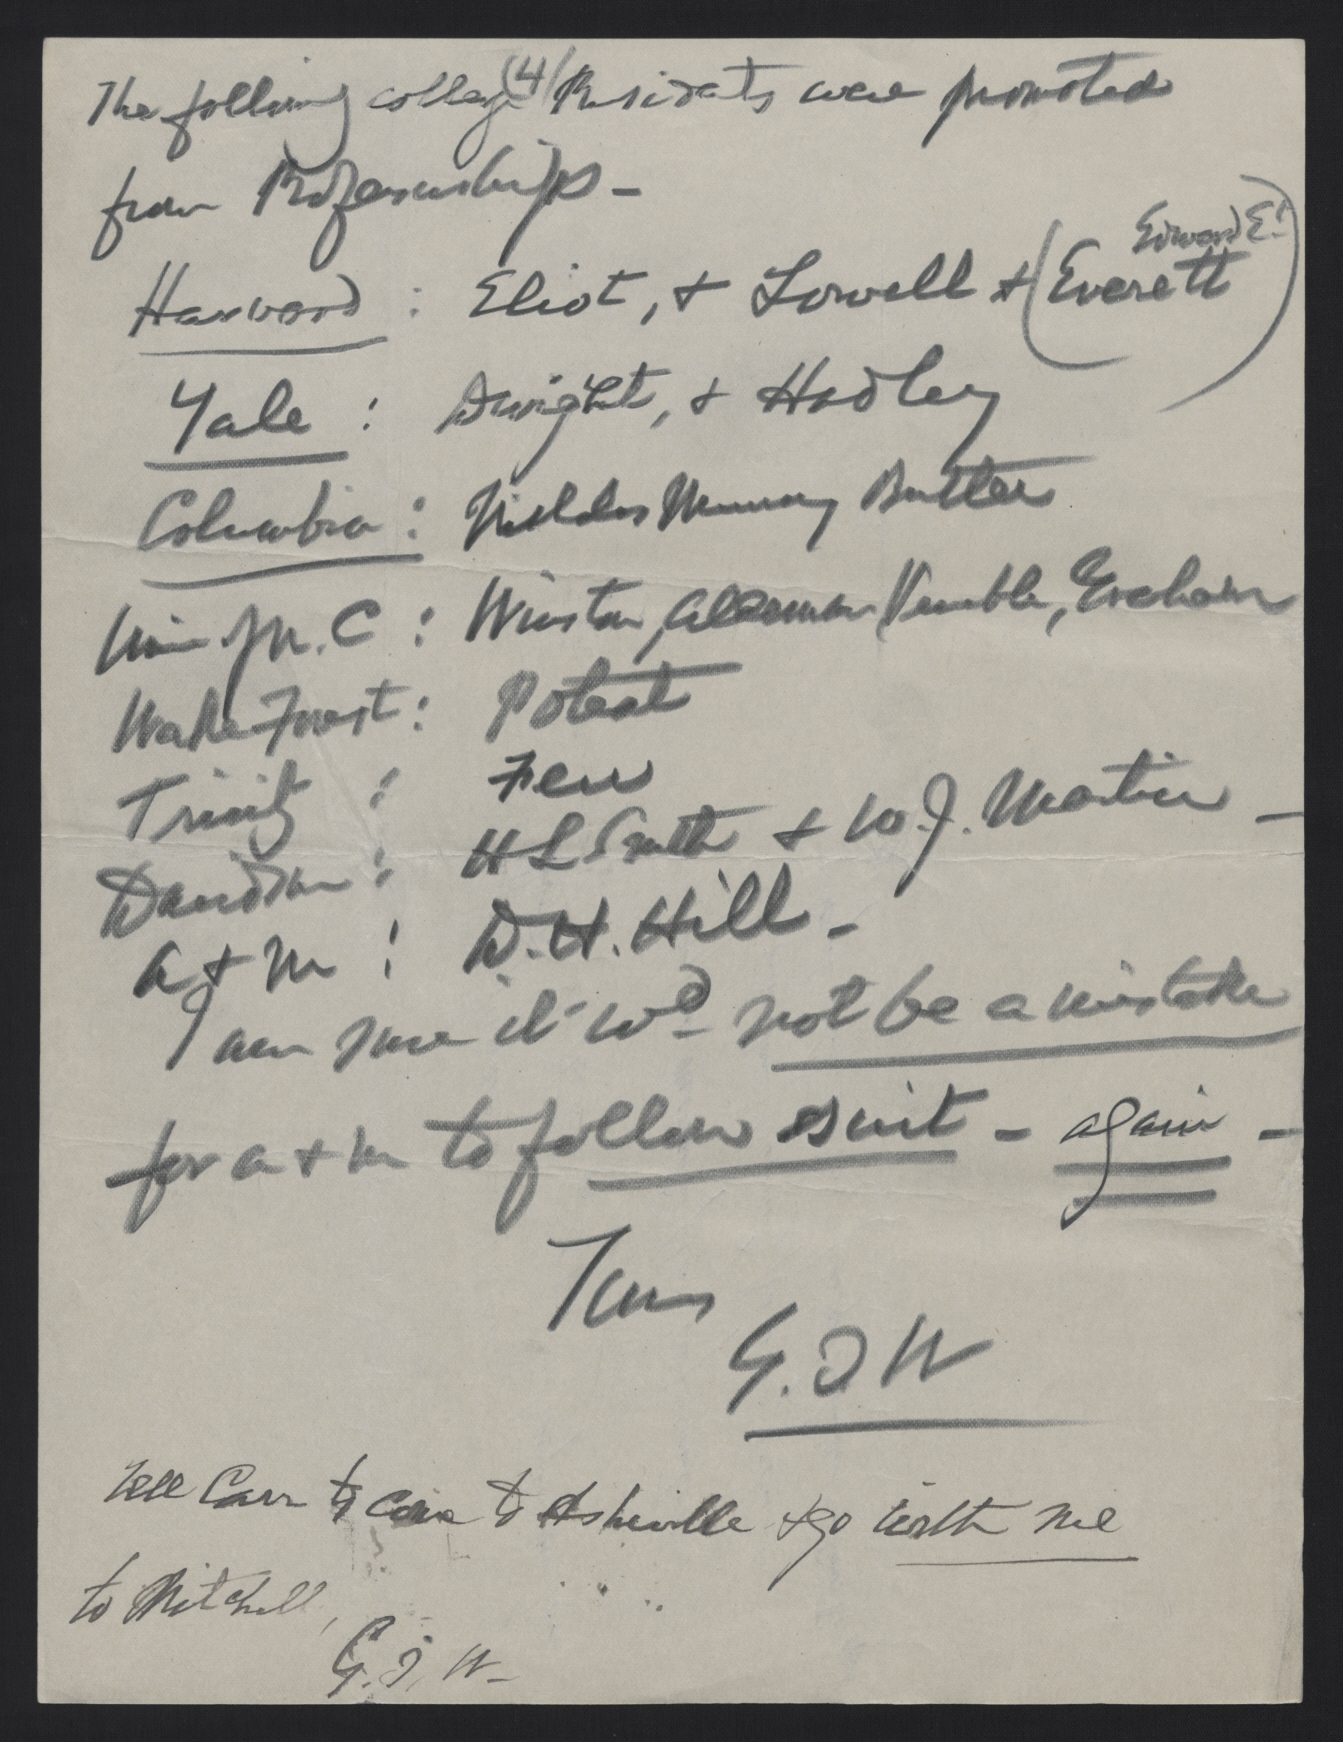 (4)
The following college Presidents were promoted
from Professorships -
Edward E!
Harvard : Eliot, & Lowell & (Everett)
Yale : Dwight, & Hadley
Columbia : Nicholas Murray Butler
Univ of N. C : Winston, Alderman, Venable, Graham
Wake Forest : Poteat
Trinity : Few
Davidson : H L Smith & W. J. Martin -
A & M : D. H. Hill -
I am sure it wd not be a mistake
for A & M to follow suit - again -
Yours
G. T W
Tell Carr to come to Asheville & go with me
to Mitchell,
G. T. W-